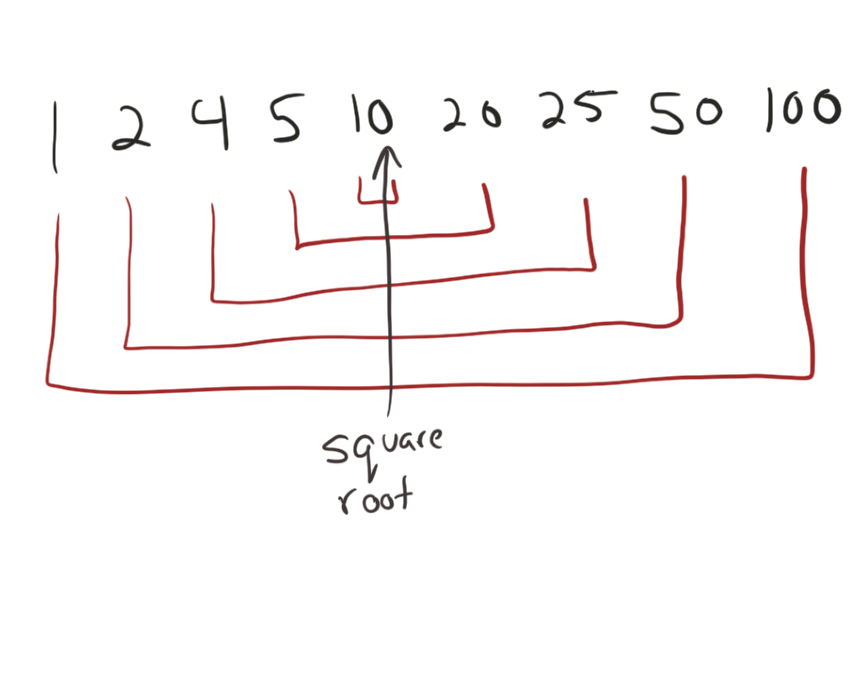 1 2 4 5 10 20 25 50 100
square
root